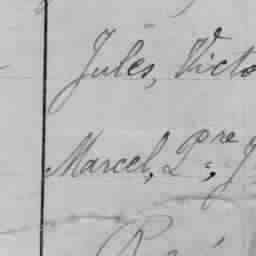 Jules, Victo
Marcel, P^re, J